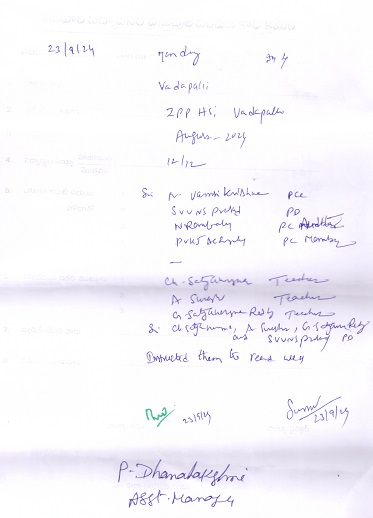 23/9/24 Monday
Vadapalli
ZPP HS, Vadapalli
August - 2024
12/12
Sri N. Vamsi Krishna PCC
SVVNS Prasad PD
PC Member
Ch. Satyanarayana Teacher
A Suresh Teacher
G. Satyanarayana Reddy Teacher
Sri Ch Satyanarayana, A Suresh, G. Satyam Reddy
and SVVNS Prasad PD
Instructed them to read well
23/9/24 23/9/24
P. Dhanalakshmi
Asst. Manager